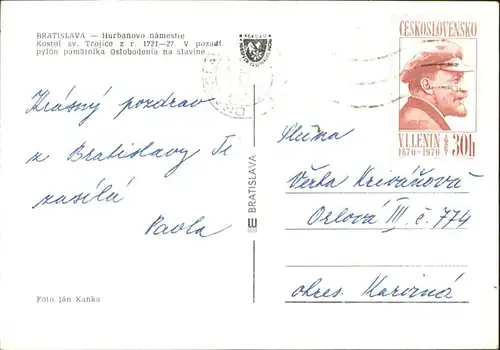 BRATISLAVA — Hurbanovo námestie
Kostol sv. Trojice z r. 1721—27. V pozadí
pylón pamätníka Oslobodenia na Slavíne
ČESKOSLOVENSKO
V.I.LENIN
1870-1970
30h
Krásný pozdrav
z Bratislavy Ti
zasílá
Pavla
BRATISLAVA
Slečna
Věrka Krivánňová
Orlová III č. 774
okres Karviná
Foto Ján Kanka